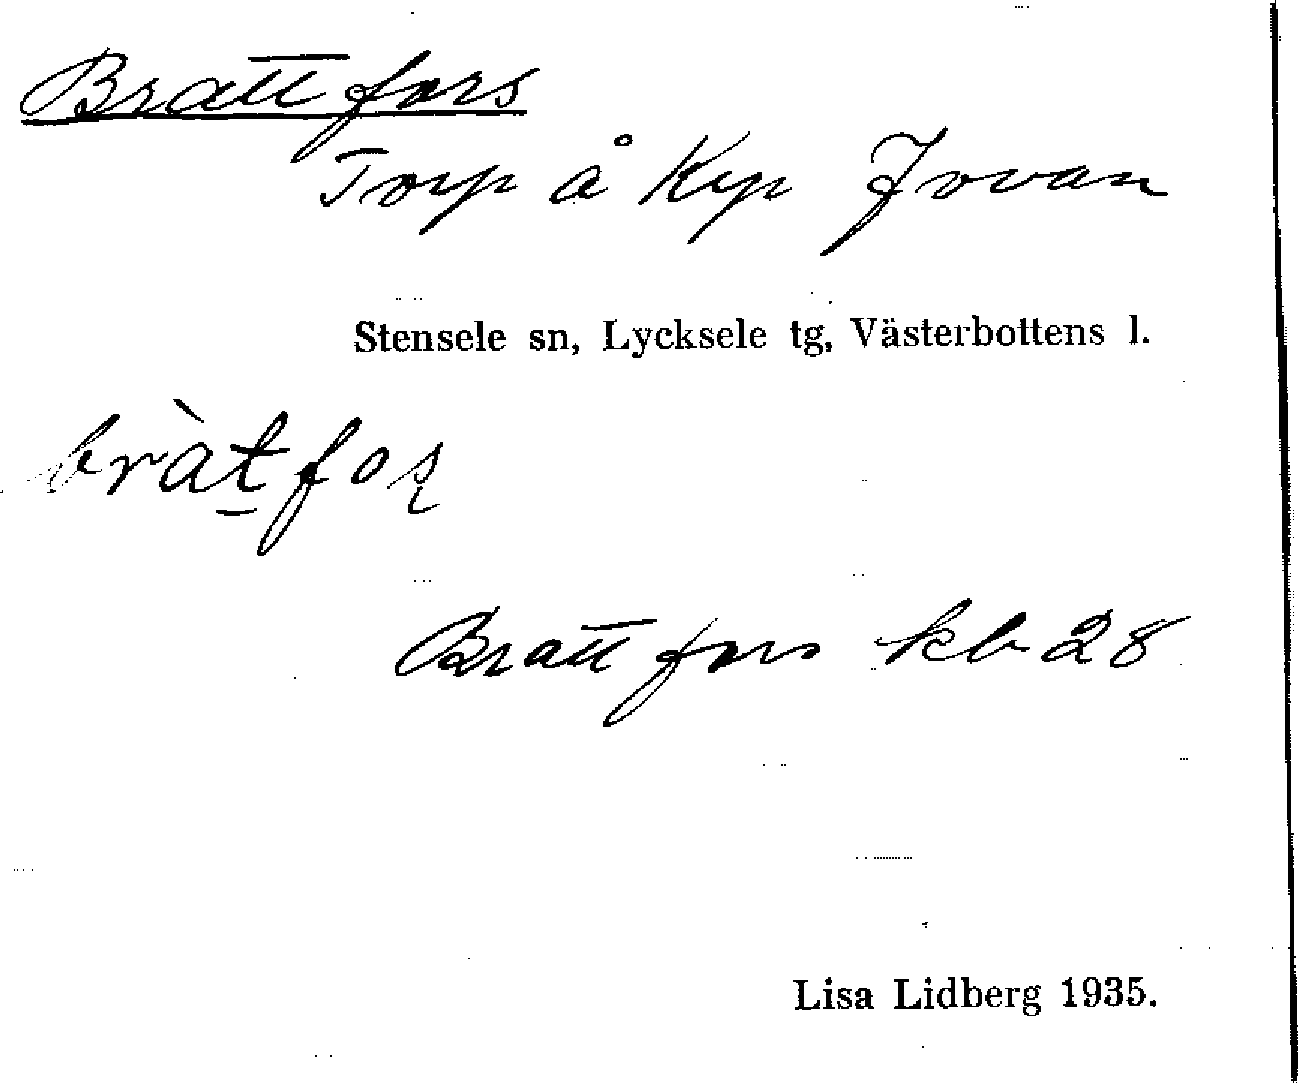 Brattfors
Torp å Krp Jovan
Stensele sn, Lycksele tg, Västerbottens l.
bràt̲foʂ
Brattfors kb 28
Lisa Lidberg 1935.